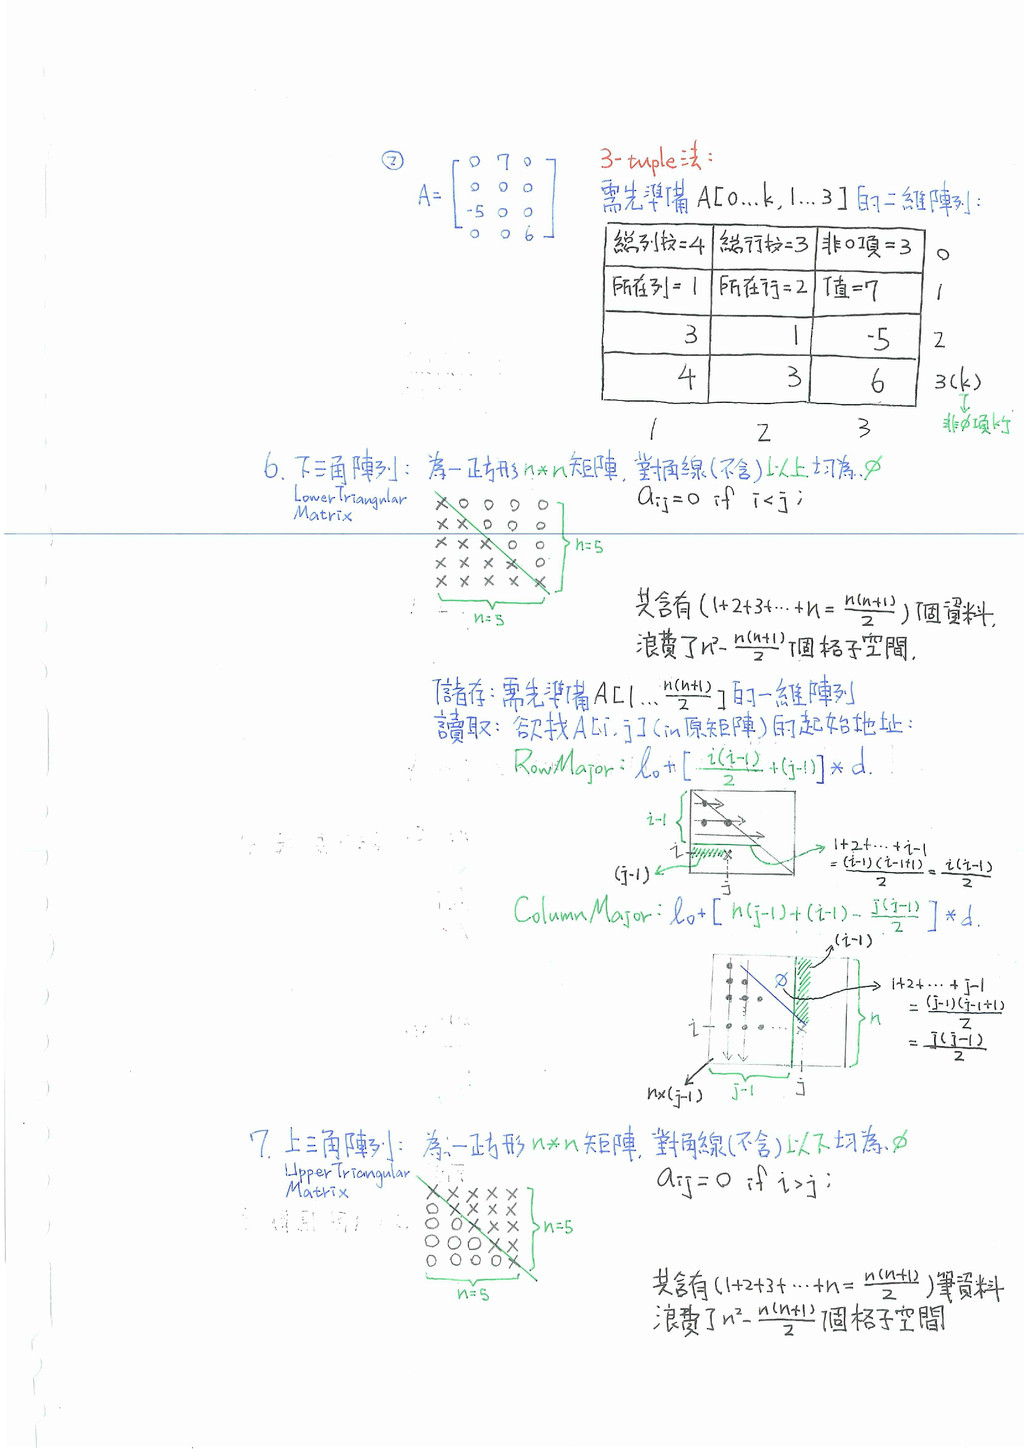 ② A= [ 0 7 0
0 0 0
-5 0 0
0 0 6 ]
3-tuple法:
需先準備 A[0...k, 1...3] 的二維陣列:
總列數=4 總行數=3 非0項=3 0
所在列=1 所在行=2 值=7 1
3 1 -5 2
4 3 6 3(k)
1 2 3
非φ項
6. 下三角陣列: 為一正方形n*n矩陣, 對角線(不含)以上均為φ
Lower Triangular
Matrix
aij=0 if i<j;
X 0 0 0 0
X X 0 0 0
X X X 0 0
X X X X 0
X X X X X
n=5
n=5
共含有 (1+2+3+...+n = n(n+1)/2) 個資料,
浪費了n²- n(n+1)/2 個格子空間.
儲存: 需先準備A[1... n(n+1)/2] 的一維陣列
讀取: 欲找A[i,j](in原矩陣)的起始地址:
Row Major: lo+[ i(i-1)/2 +(j-1)]*d.
i-1
i
(j-1)
j
1+2+...+i-1
= (i-1)(i-1+1)/2 = i(i-1)/2
Column Major: lo+[ n(j-1)+(i-1)- j(j-1)/2 ]*d.
(i-1)
φ
i
n
j-1
j
nx(j-1)
1+2+...+j-1
= (j-1)(j-1+1)/2
= j(j-1)/2
7. 上三角陣列: 為一正方形n*n矩陣, 對角線(不含)以下均為φ
Upper Triangular
Matrix
aij=0 if i>j;
X X X X X
0 X X X X
0 0 X X X
0 0 0 X X
0 0 0 0 X
n=5
n=5
共含有 (1+2+3+...+n = n(n+1)/2) 筆資料
浪費了n²- n(n+1)/2 個格子空間